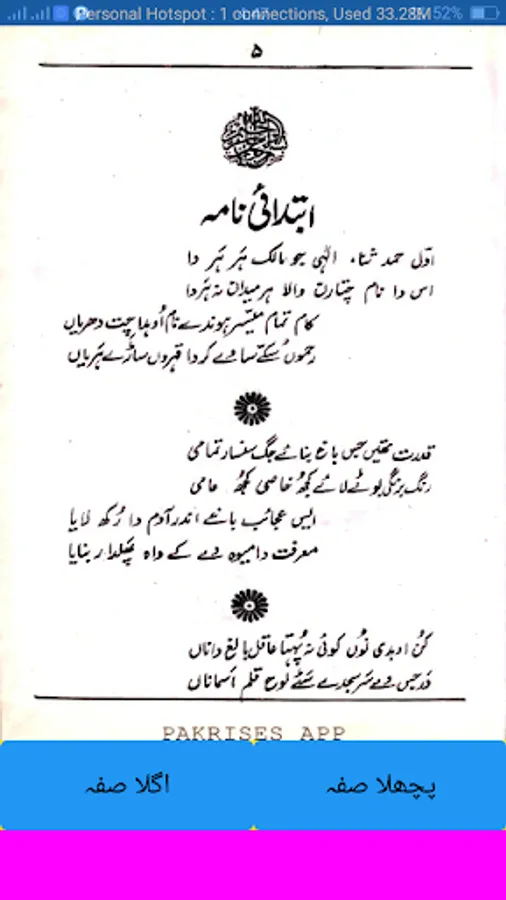 Personal Hotspot : 1 connections, Used 33.28M 52%
۵
ابتدائی نامہ
اوّل حمد ثناء الٰہی جو مالک ہر ہر دا
اس دا نام چتارن والا ہر میدان نہ ہردا
کام تمام میسّر ہوندے نام اُوہدا چت دھریاں
رحموں سُکے ساوے کردا قہروں ساڑے ہریاں
قدرت تھیں جس باغ بنائے جگ سنسار تمامی
رنگ برنگی بوٹے لائے کجھ خاصی کجھ عامی
ایس عجائب باغے اندر آدم دا رُکھ لایا
معرفت دا میوہ دے کے واہ پھلدار بنایا
کُن اوہدی نُوں کوئی نہ پُہتا عاقل بالغ داناں
در جس دے سر سجدے سٹے لوح قلم اسماناں
PAKRISES APP
پچھلا صفہ
اگلا صفہ